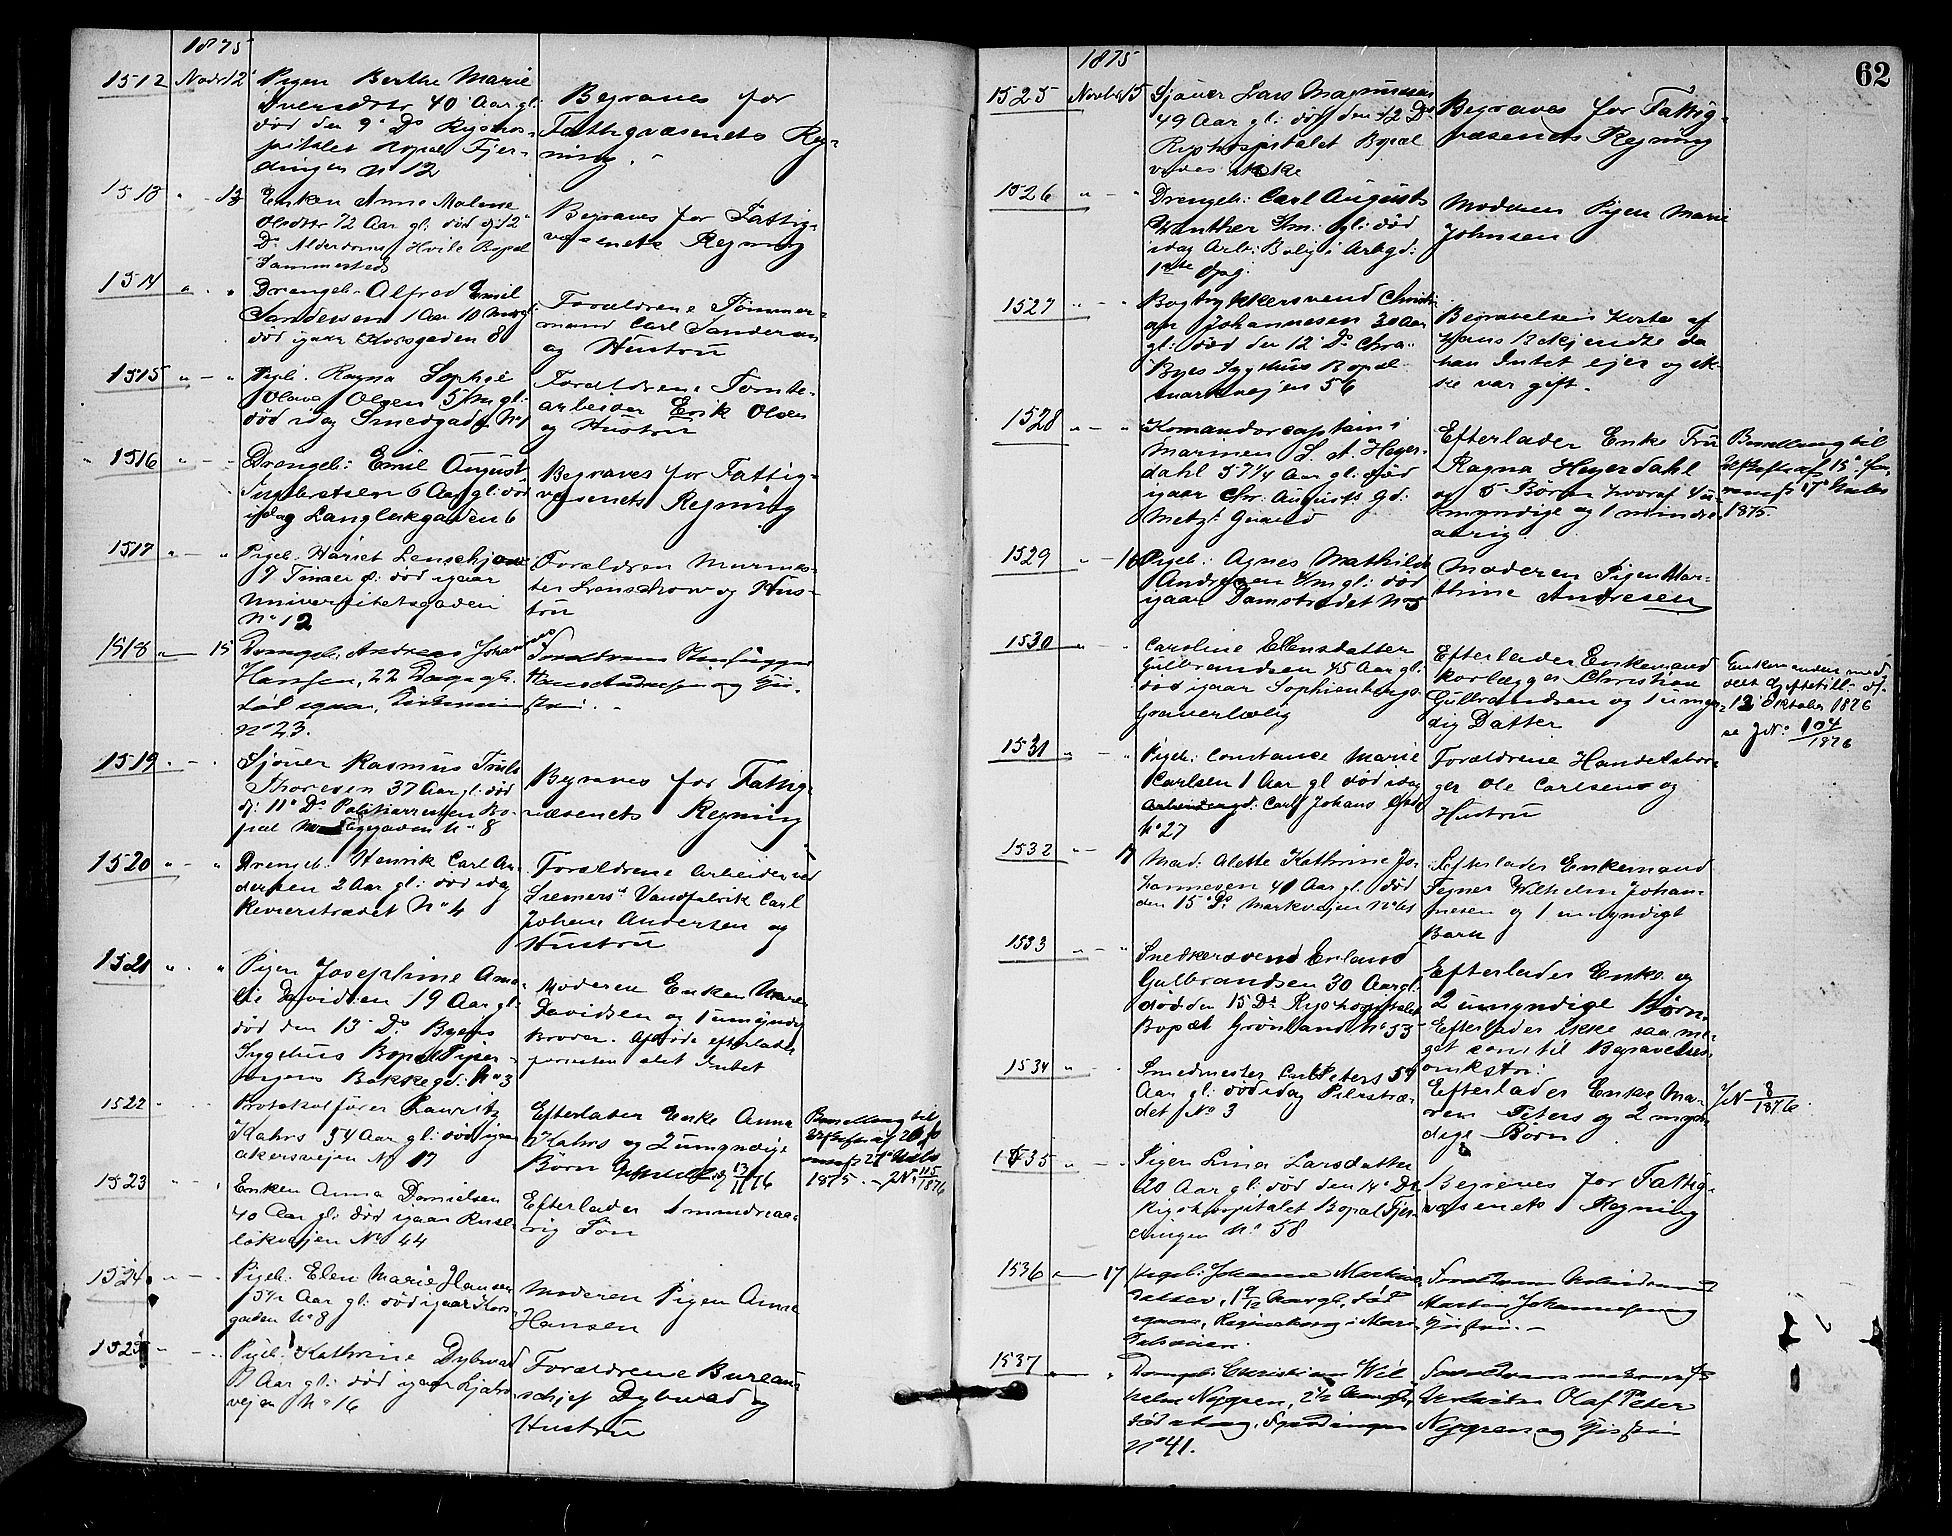 1875
1512 Novbr 12 Pigen Berthe Marie
Iversdtr 40 Aar gl:
død den 9' Ds Rigshos-
pitalet Bopæl Fjer-
dingen No 12
Begraves for
Fattigvæsenets Reg-
ning.
1513 " - 13 Enken Anne Malene
Olsdtr 72 Aar gl: død d: 12'
Ds Alderdoms Hvile Bopæl
Tammestads
Begraves for Fattig-
væsenets Regning
1514 " - " Drengeb. Alfred Emil
Sandersen 1 Aar 10
død igaar Korsgaden 8
Forældrene Tømmer-
mand Carl Sandersen
og Hustru
1515 " - " Pigeb. Ragna Sophie
Olava Olsen 5/m gl:
død idag Smedgad No 1
Forældrene Tomte-
arbeider Erik Olsen
og Hustru
1516 " - " Drengeb: Emil August
6 Aar gl: død
idag Langleikgaden 6
Begraves for Fattig-
væsenets Regning
1517 " - " Pigeb. Hariet Lenschow
7 Timer gl: død igaar
Universitetsgaden
No 12
Forældren Murmes-
ter Lenschow og Hus-
tru
1518 " - 15 Drengeb. Andreas Johan
Hansen, 22 Dage gl.
død igaar,
No 23.
Forældrene Stenhugger
Hans Andreasen og Hu-
stru. -
1519 " - " Sjouer Rasmus Truls
Thoresen 37 Aar gl: død
d: 11' Ds Politiarresten Bo-
pæl No 8
Begraves for Fattig-
væsenets Regning
1520 " - " Drengeb. Henrik Carl An-
dersen 2 Aar gl: død idag
Revierstrædet No 4
Forældrene Arbeider ved
Vandfabrik Carl
Johan Andersen og
Hustru
1521 " - " Pigen Josephine Ama-
lie Davidsen 19 Aar gl.
død den 13' Ds Byens
Sygehus Bopæl Piper-
vigens Bakkegd: No 3
Moderen Enken Mare
Davidsen og 1 umyndig
Broder. Afdøde efterlader
forresten slet Intet
1522 " - " Protokolfører Lauritz
Kahrs 54 Aar gl: død igaar
Akersveien No 17
Efterlader Enke Anna
Kahrs og 2 umyndige
Børn 13/11 76
Bevilling til
Uskifte af 20
27' Novbr
1875. - JNo 115/1876
1523 " - " Enken Anna Danielsen
40 Aar gl: død igaar Ruse-
løkveien No 44
Efterlader 1 mindreaa-
rig Søn
1524 " - " Pigeb. Elen Marie Hansen
5 1/2 Aar gl: død igaar Kors-
gaden No 8
Moderen Pigen Anna
Hansen
1525 " - " Pigeb. Kathrine Dybwad
9 Aar gl: død igaar
veien No 16
Forældrene Bureau-
schef Dybwad og
Hustru
62
1875
1525 Novbr 15 Sjouer Lars Magnussen
49 Aar gl: død den 12 Ds
Rigshospitalet Bopæl
vides ikke
Begraves for Fattig-
væsenets Regning
1526 " - " Drengeb: Carl August
Gunther 4/m: gl: død
idag Arb: Bolig i Arbgd:
1ste Opg:
Moderen Pigen Marie
Johnsen
1527 " - " Bogtrykkersvend Christi-
an Johannesen 30 Aar
gl: død den 12' Ds Chra
Byes Sygehus Bopæl
Markveien 56
Begravelsen Kostes af
hans Bekjendte da
han Intet ejer og ik-
ke var gift.
1528 " - " Komandørcaptain i
Marinen S. A. Heyer-
dahl 57 1/4 Aar gl: død
igaar Chr: Augusts Gd:
Metz Gaard
Efterlader Enke Fru
Ragna Heyerdahl
og 5 Børn hvoraf 4 u-
myndige og 1 mindre-
aarig
Bevilling til
Uskifte af 15'
17' Novbr
1875.
1529 " - 16 Pigeb: Agnes Mathilde
Andresen 4/m gl: død
igaar Damstrædet No 5
Moderen Pigen Mar-
thine Andresen
1530 " - " Caroline Ellensdatter
Gulbrandsen 45 Aar gl:
død igaar Sophienbergs
Graverbolig
Efterlader Enkemand
Korlægger Christian
Gulbrandsen og 1 umyn-
dig Datter
Enkemanden med-
delt Egteskb.till: df.
12' Oktober 1876
se JNo 104/1876
1531 " - " Pigeb: Constance Marie
Carlsen 1 Aar gl død idag
Carl Johans Gade
No 27
Forældrene Handelsbor-
ger Ole Carlsens og
Hustru
1532 " - 17 Mad: Alette Kathrine Jo-
hannesen 40 Aar gl. død
den 15' Ds Markveien No 61
Efterlader Enkemand
Tegner Wilhelm Johan-
nesen og 1 umyndigt
Barn
1533 " - " Snedkersvend Erland
Gulbrandsen 30 Aar gl:
død den 15 Ds Rigshospitalet
Bopæl Grønland No 53
Efterlader Enke og
2 umyndige Børn.
Efterlader ikke saa me-
get som til Begravelses
omkstn:
1534 " - " Smedmester Carl Peters 54
Aar gl: død idag Pilestræ-
det No 3
Efterlader Enke Ma-
ren Peters og 2 myn-
dige Børn
JNo 8/1876.
1535 " - " Pigen Lina Larsdatter
20 Aar gl: død den 14' Ds
Rigshospitalet Bopæl Fjer-
dingen No 58
Begraves for Fattig-
væsenets Regning
1536 " - 17 Pigeb: Johanne Martine
1 9/12 Aar gl., død
igaar,
Forældrene
Martin Johannesen og
Hustru. -
1537 " - " Drengeb. Christian Wil-
helm Nygren, 2 1/2 Aar gl,
død idag,
No 41.
Forældrene
Olaf Peter
Nygren og Hustru